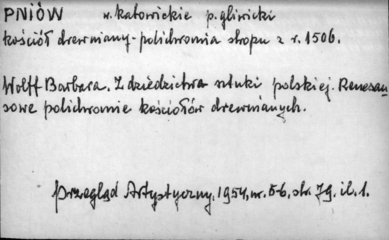 PNIÓW w. katowickie p. gliwicki
kościół drewniany - polichromia stropu z r. 1506.
Wolff Barbara. Z dziedzictwa sztuki polskiej. Renesan-
sowe polichromie kościołów drewnianych.
Przegląd Artystyczny, 1954, nr. 5-6, str. 79. il. 1.